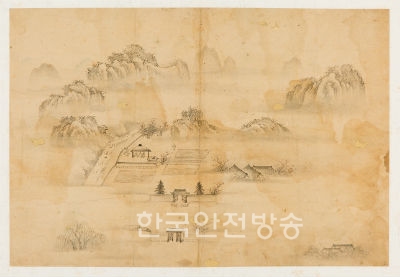 한국안전방송